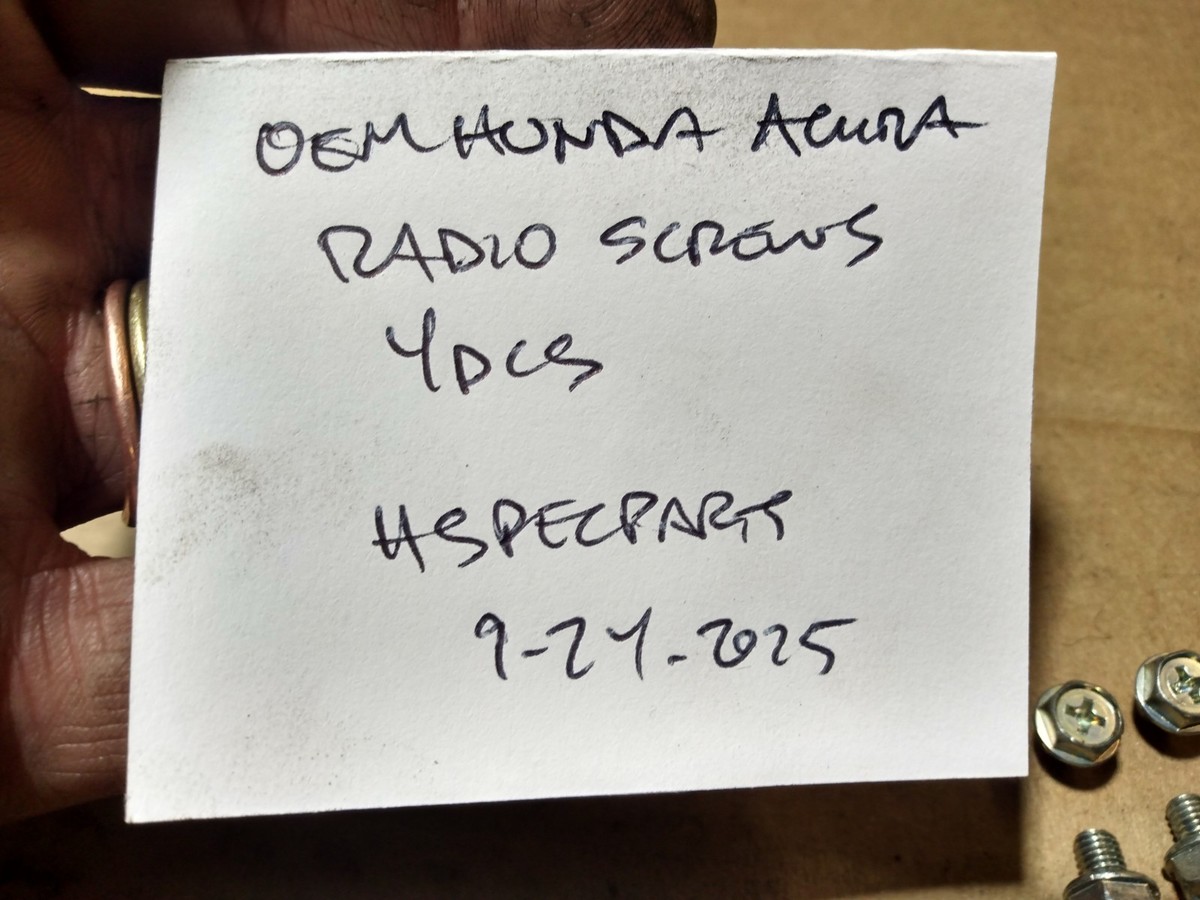 OEM HONDA ACURA
RADIO SCREWS
4PCS
HSPECPARTS
9-24-2025